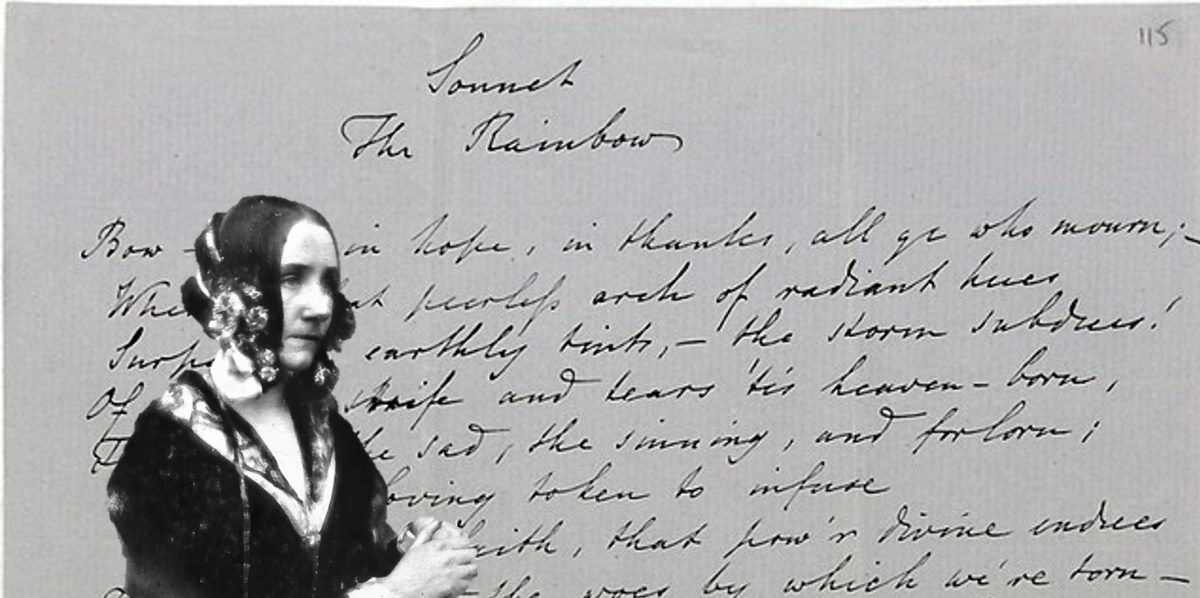 115
Sonnet
The Rainbow
Bow – in hope, in thanks, all ye who mourn;–
peerless arch of radiant hues
earthly tints,– the storm subdues!
Of strife and tears 'tis heaven-born,
the sad, the sinning, and forlorn;
loving token to infuse
that pow'r divine endues
the woes by which we're torn –